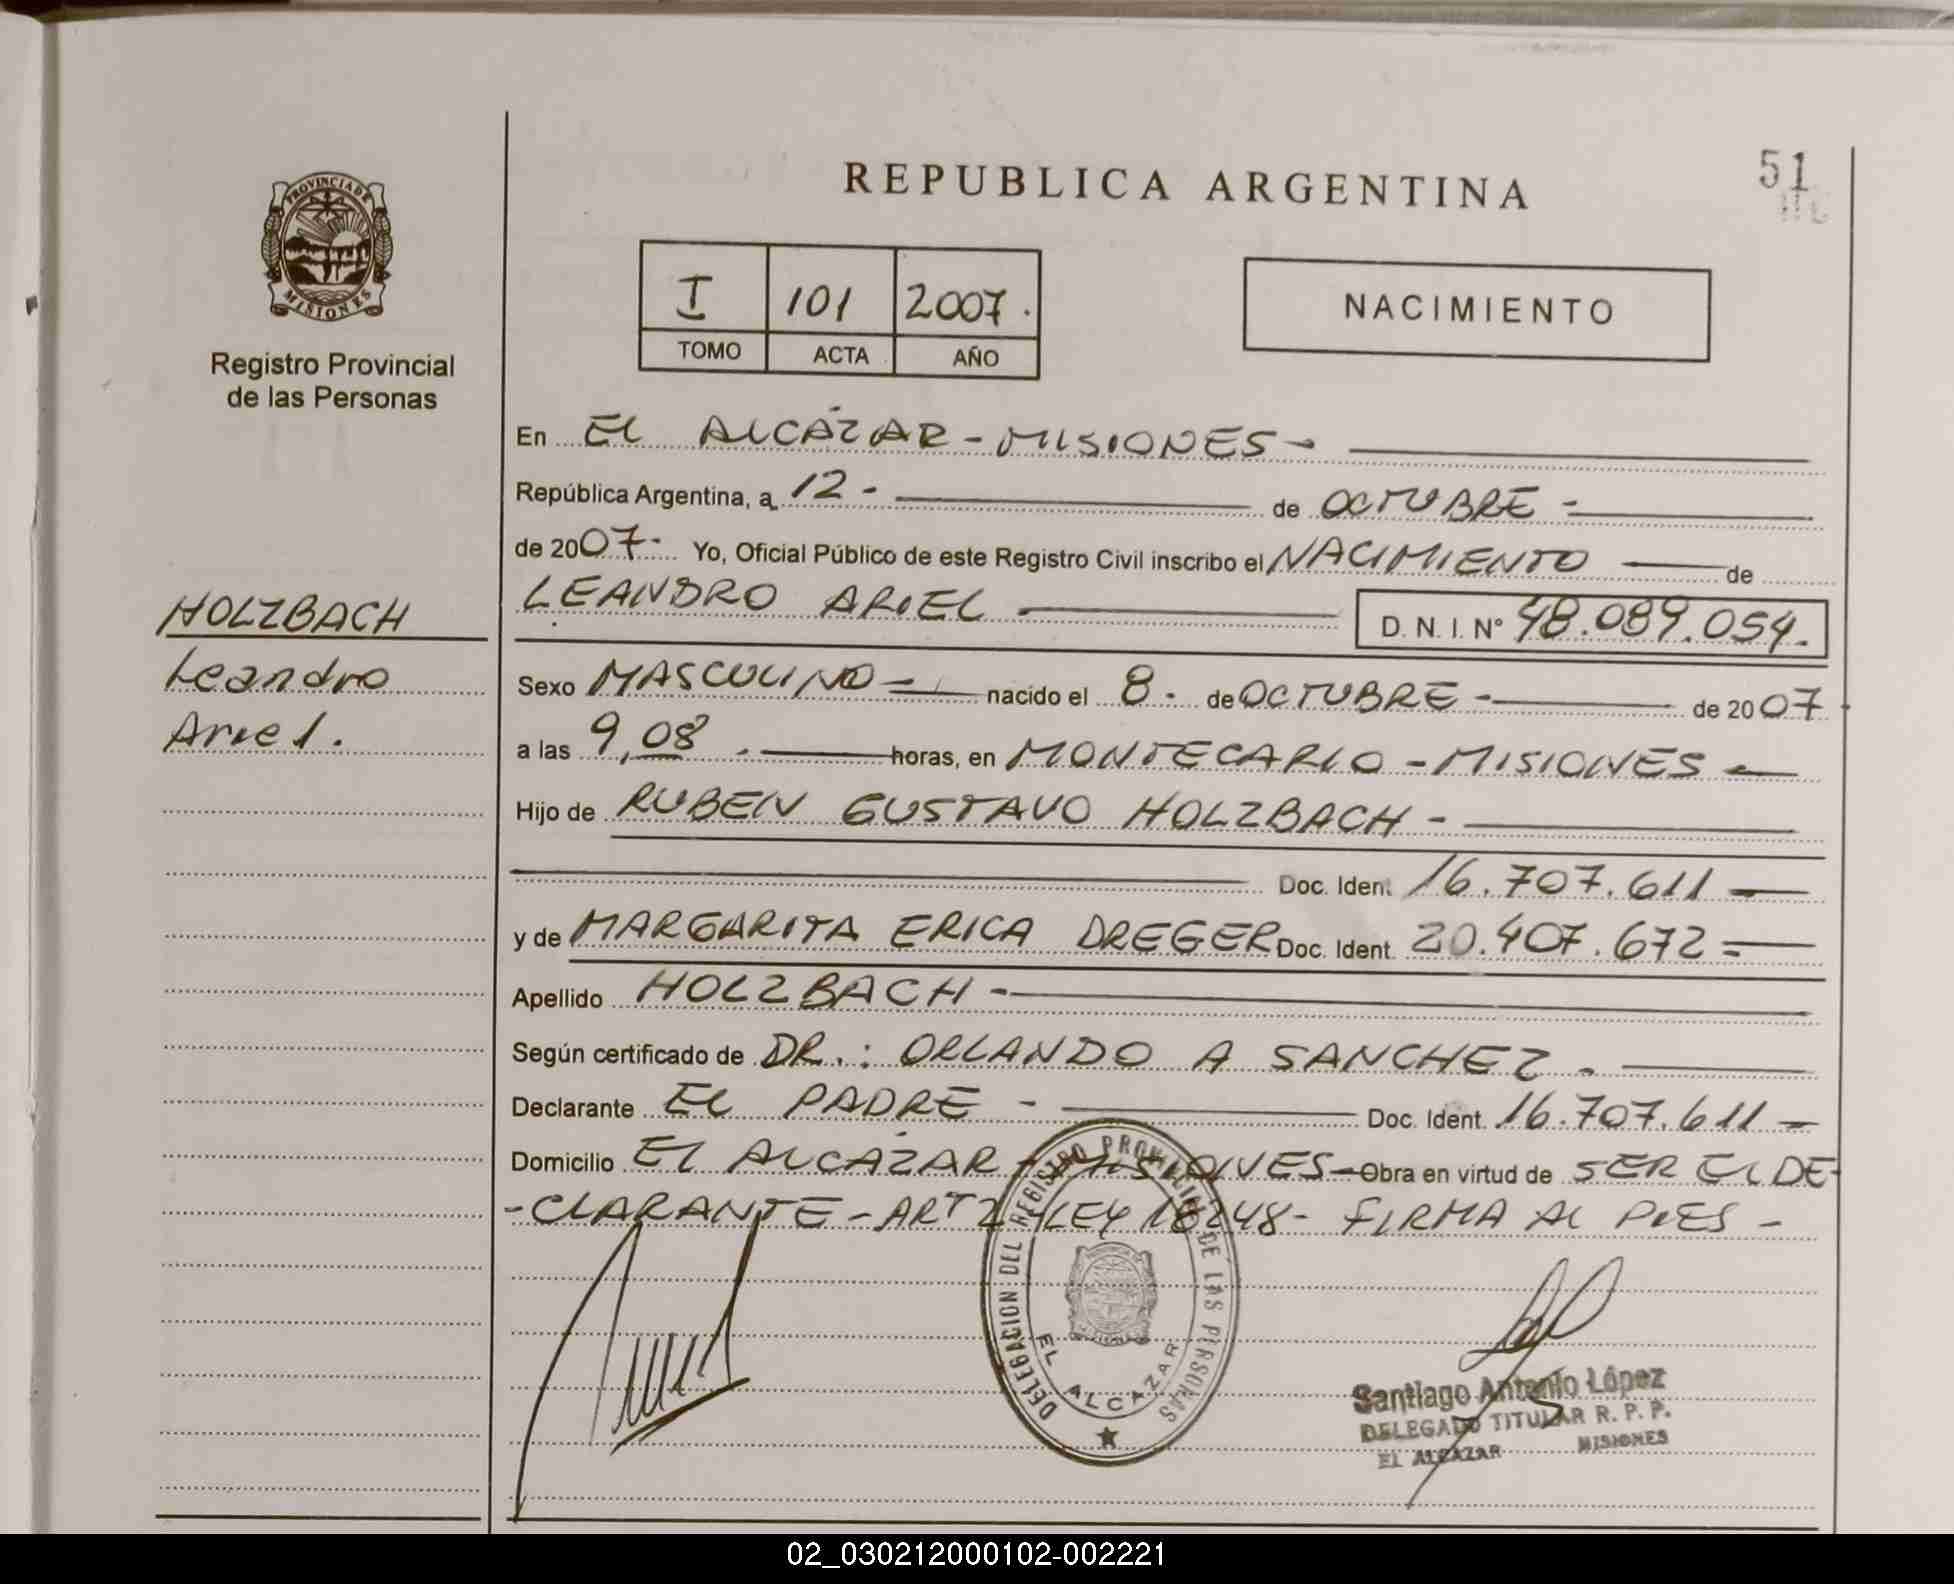 REPUBLICA ARGENTINA
51
PROVINCIA DE
MISIONES
Registro Provincial
de las Personas
I 101 2007.
TOMO ACTA AÑO
NACIMIENTO
En EL ALCÁZAR - MISIONES -
República Argentina, a 12 - de OCTUBRE -
de 2007- Yo, Oficial Público de este Registro Civil inscribo el NACIMIENTO de
LEANDRO ARIEL D. N. I. N° 48.089.054.
HOLZBACH
Leandro
Ariel.
Sexo MASCULINO - nacido el 8 - de OCTUBRE - de 2007
a las 9,08 . horas, en MONTECARLO - MISIONES -
Hijo de RUBEN GUSTAVO HOLZBACH -
Doc. Ident 16.707.611 -
y de MARGARITA ERICA DREGER Doc. Ident. 20.407.672 =
Apellido HOLZBACH -
Según certificado de DR.: ORLANDO A SANCHEZ -
Declarante EL PADRE - Doc. Ident. 16.707.611 -
Domicilio EL ALCÁZAR - MISIONES - Obra en virtud de SER EL DE-
- CLARANTE - ART 2 LEY 18248 - FIRMA AL PIES -
DELEGACION DEL REGISTRO PROVINCIAL DE LAS PERSONAS
EL ALCAZAR
Santiago Antonio López
DELEGADO TITULAR R. P. P.
EL ALCAZAR MISIONES
02_030212000102-002221